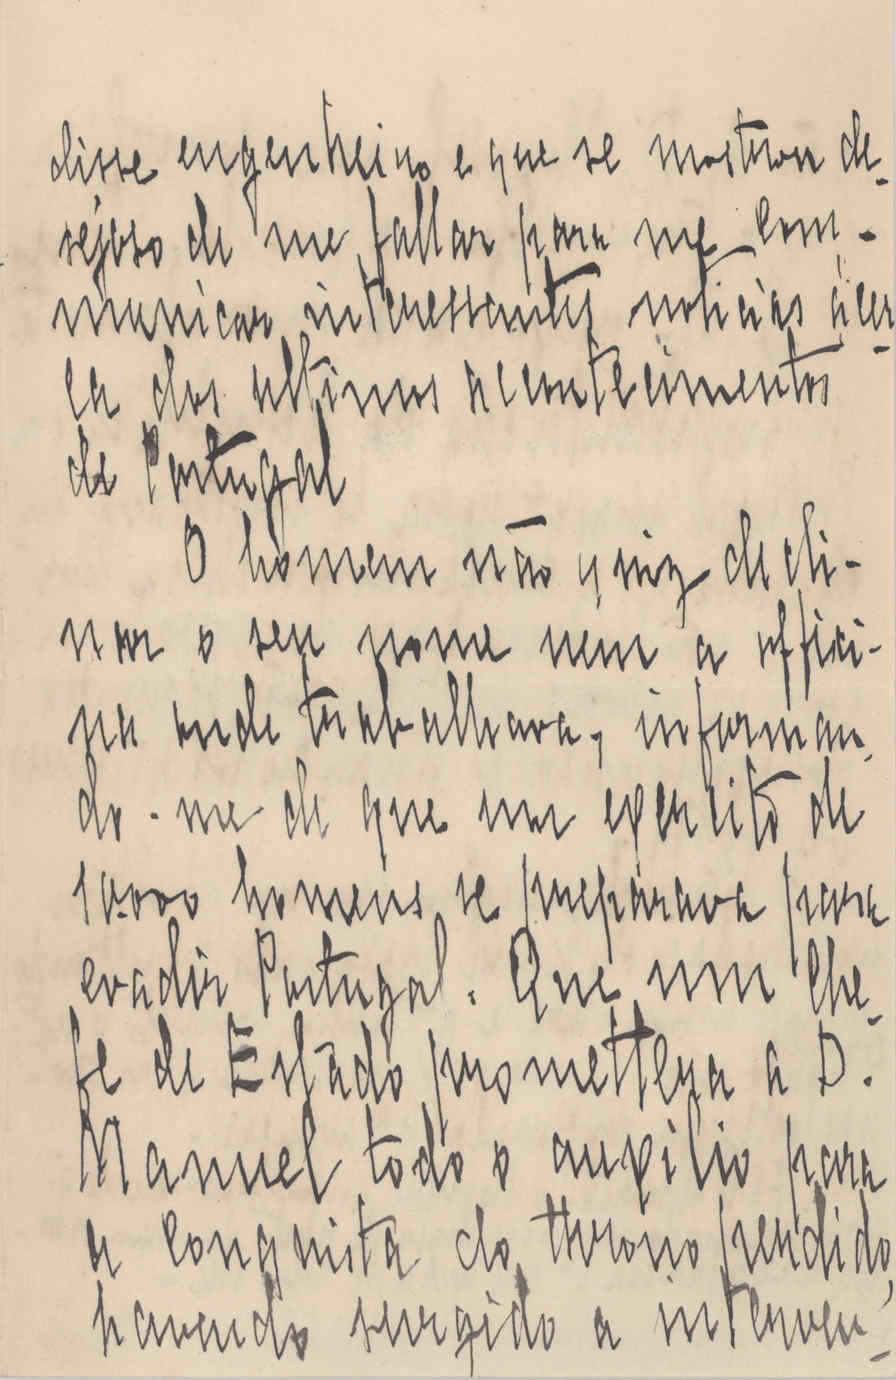 disse engenheiro e que se mostrou de-
sejoso de me fallar para me com-
municar interessantes noticias ácer-
ca dos ultimos acontecimentos
de Portugal
O homem não quiz decli-
nar o seu nome nem a offici-
na onde trabalhava, informan-
do-me de que um exercito de
10.000 homens se preparava para
evadir Portugal. Que um Che-
fe de Estado promettera a D.
Manuel todo o auxilio para
a conquista do throno perdido,
havendo surgido a interven-